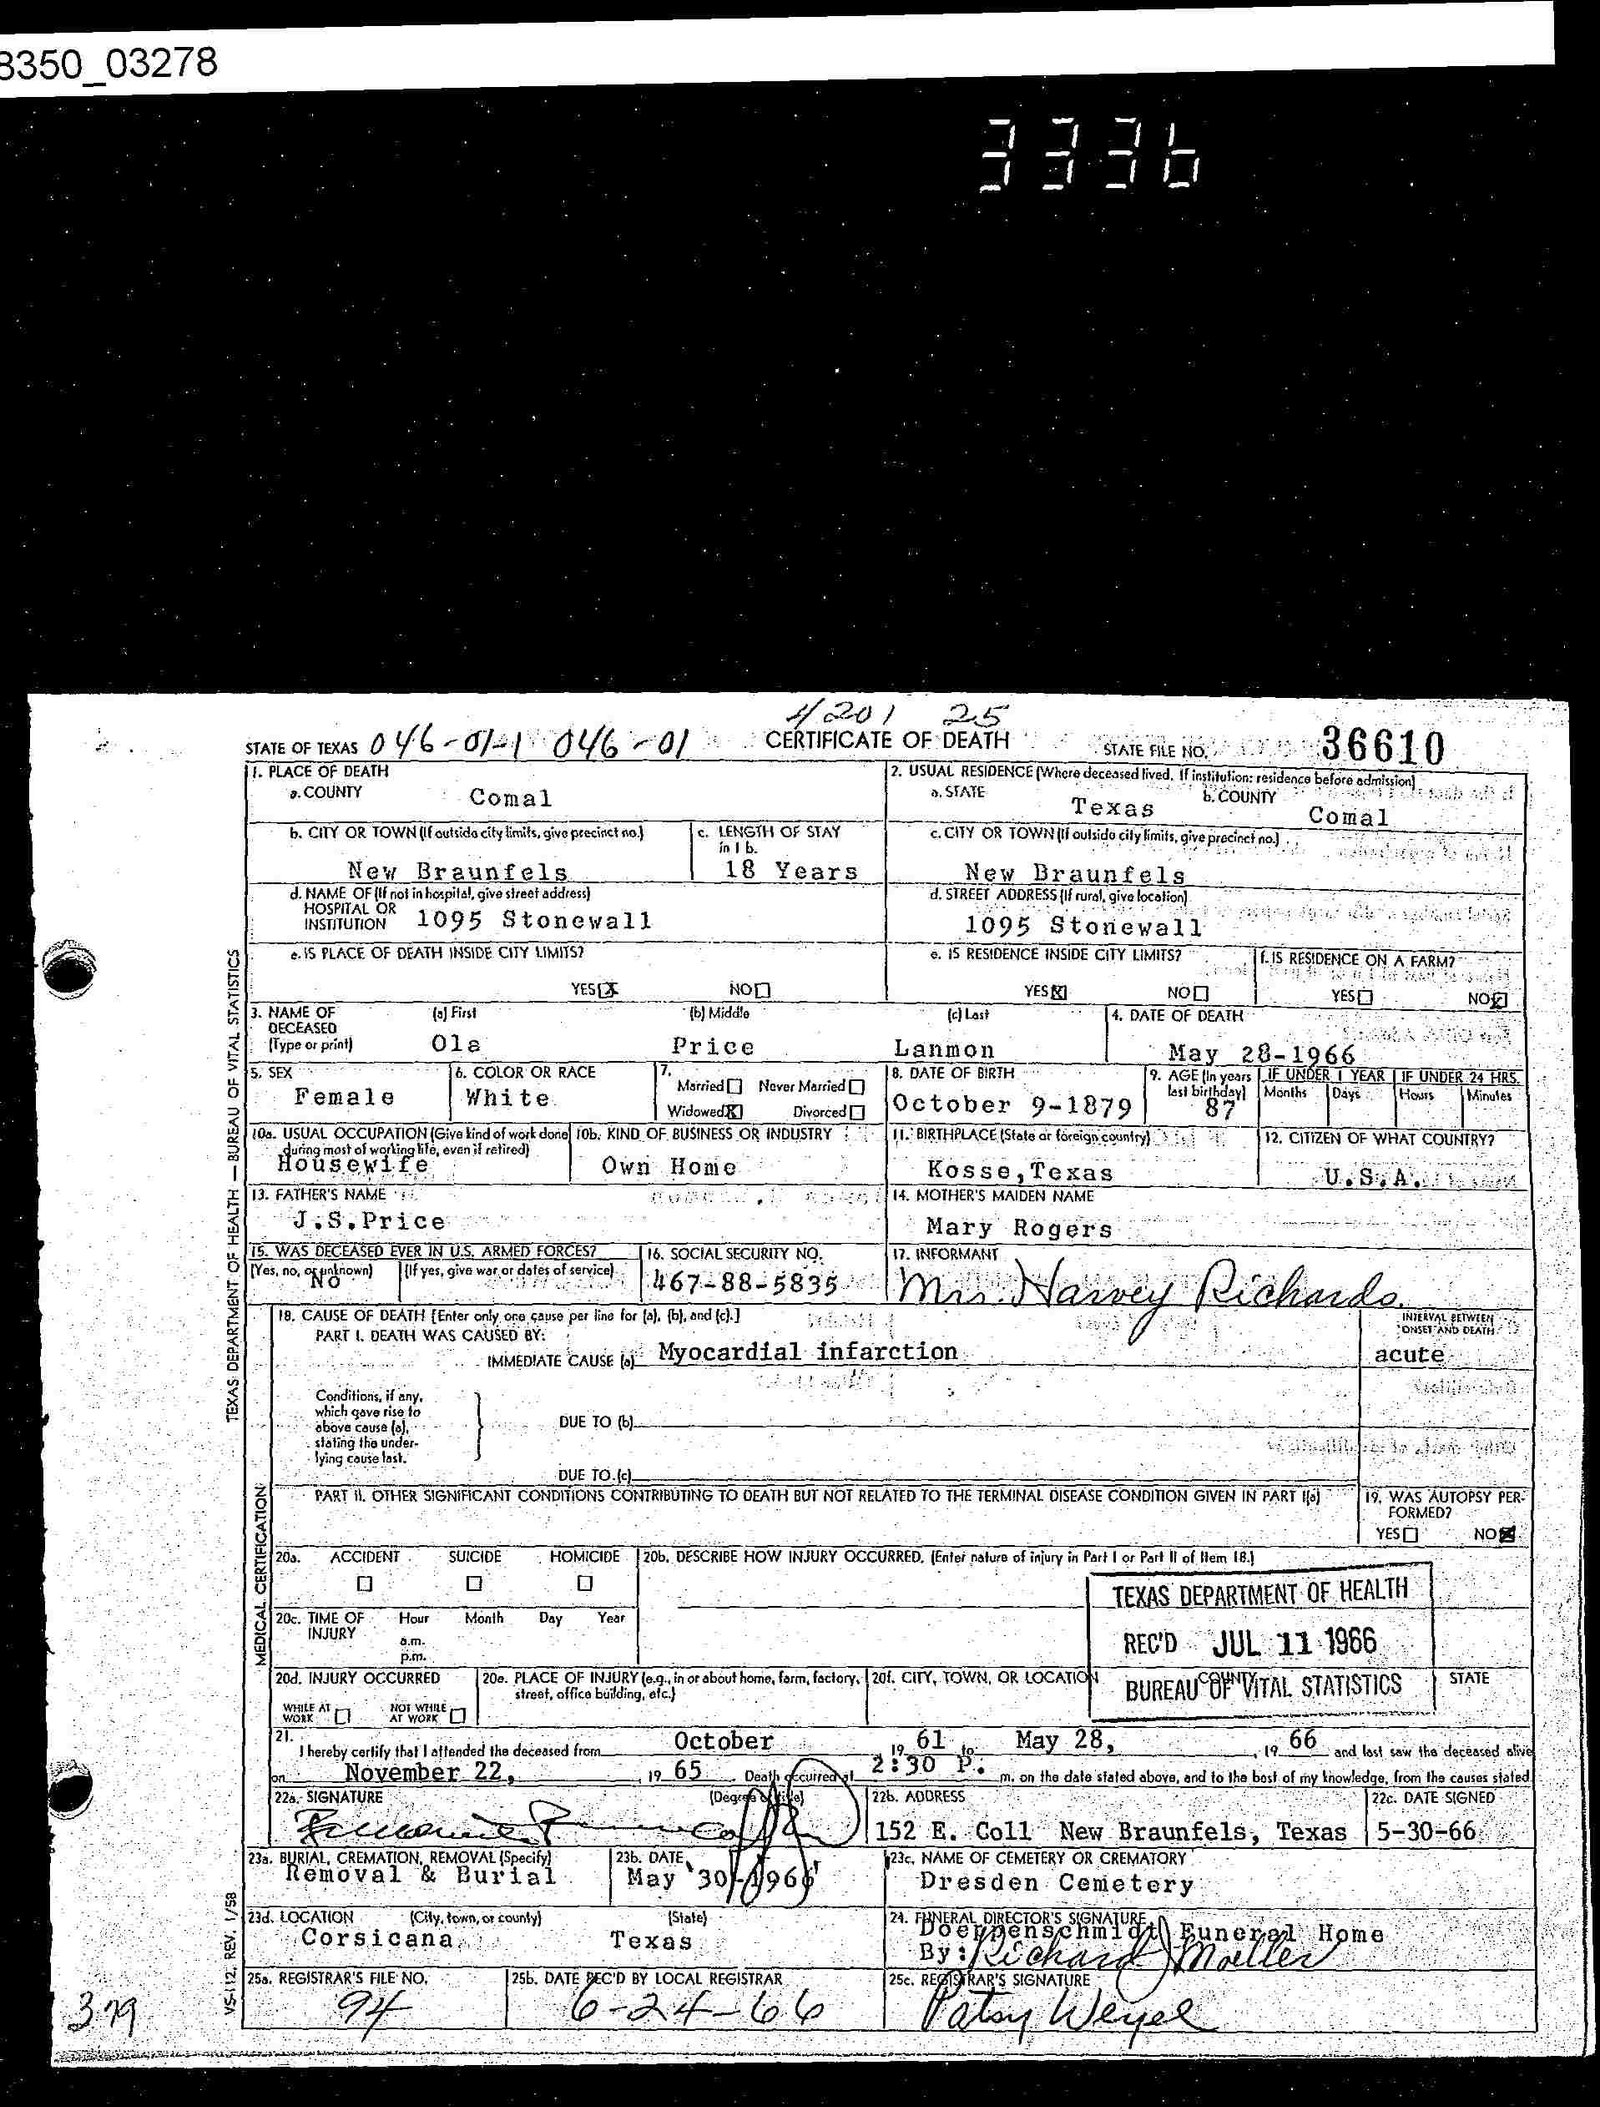 8350_03278
3336
4201 25
STATE OF TEXAS 046-01-1 046-01 CERTIFICATE OF DEATH STATE FILE NO. 36610
1. PLACE OF DEATH
a. COUNTY Comal
2. USUAL RESIDENCE (Where deceased lived. If institution: residence before admission)
a. STATE Texas b. COUNTY Comal
b. CITY OR TOWN (If outside city limits, give precinct no.) New Braunfels
c. LENGTH OF STAY in 1 b. 18 Years
c. CITY OR TOWN (If outside city limits, give precinct no.) New Braunfels
d. NAME OF (If not in hospital, give street address) HOSPITAL OR INSTITUTION 1095 Stonewall
d. STREET ADDRESS (If rural, give location) 1095 Stonewall
e. IS PLACE OF DEATH INSIDE CITY LIMITS? YES X NO
e. IS RESIDENCE INSIDE CITY LIMITS? YES X NO
f. IS RESIDENCE ON A FARM? YES NO X
3. NAME OF DECEASED (Type or print) (a) First Ola (b) Middle Price (c) Last Lanmon
4. DATE OF DEATH May 28-1966
5. SEX Female
6. COLOR OR RACE White
7. Married Never Married Widowed X Divorced
8. DATE OF BIRTH October 9-1879
9. AGE (In years last birthday) 87
IF UNDER 1 YEAR Months Days
IF UNDER 24 HRS. Hours Minutes
10a. USUAL OCCUPATION (Give kind of work done during most of working life, even if retired) Housewife
10b. KIND OF BUSINESS OR INDUSTRY Own Home
11. BIRTHPLACE (State or foreign country) Kosse, Texas
12. CITIZEN OF WHAT COUNTRY? U.S.A.
13. FATHER'S NAME J.S.Price
14. MOTHER'S MAIDEN NAME Mary Rogers
15. WAS DECEASED EVER IN U.S. ARMED FORCES?
(Yes, no, or unknown) NO (If yes, give war or dates of service)
16. SOCIAL SECURITY NO. 467-88-5835
17. INFORMANT Mrs. Harvey Richards
18. CAUSE OF DEATH [Enter only one cause per line for (a), (b), and (c).]
PART I. DEATH WAS CAUSED BY:
INTERVAL BETWEEN ONSET AND DEATH
IMMEDIATE CAUSE (a) Myocardial infarction acute
Conditions, if any, which gave rise to above cause (a), stating the under-lying cause last.
DUE TO (b)
DUE TO (c)
PART II. OTHER SIGNIFICANT CONDITIONS CONTRIBUTING TO DEATH BUT NOT RELATED TO THE TERMINAL DISEASE CONDITION GIVEN IN PART I(a)
19. WAS AUTOPSY PER-FORMED? YES NO X
20a. ACCIDENT SUICIDE HOMICIDE
20b. DESCRIBE HOW INJURY OCCURRED. (Enter nature of injury in Part I or Part II of Item 18.)
20c. TIME OF INJURY Hour Month Day Year a.m. p.m.
TEXAS DEPARTMENT OF HEALTH
REC'D JUL 11 1966
BUREAU OF VITAL STATISTICS
20d. INJURY OCCURRED WHILE AT WORK NOT WHILE AT WORK
20e. PLACE OF INJURY (e.g., in or about home, farm, factory, street, office building, etc.)
20f. CITY, TOWN, OR LOCATION COUNTY STATE
21. I hereby certify that I attended the deceased from October 19 61 to May 28, 19 66 and last saw the deceased alive
on November 22, 19 65 Death occurred at 2:30 P. m. on the date stated above, and to the best of my knowledge, from the causes stated
22a. SIGNATURE (Degree or title)
22b. ADDRESS 152 E. Coll New Braunfels, Texas
22c. DATE SIGNED 5-30-66
23a. BURIAL, CREMATION, REMOVAL (Specify) Removal & Burial
23b. DATE May 30-1966
23c. NAME OF CEMETERY OR CREMATORY Dresden Cemetery
23d. LOCATION (City, town, or county) (State) Corsicana Texas
24. FUNERAL DIRECTOR'S SIGNATURE Doeppenschmidt Funeral Home
By: Richard Moeller
25a. REGISTRAR'S FILE NO. 94
25b. DATE REC'D BY LOCAL REGISTRAR 6-24-66
25c. REGISTRAR'S SIGNATURE Patsy Weyel
379
TEXAS DEPARTMENT OF HEALTH — BUREAU OF VITAL STATISTICS
MEDICAL CERTIFICATION
VS-112, REV. 1/58